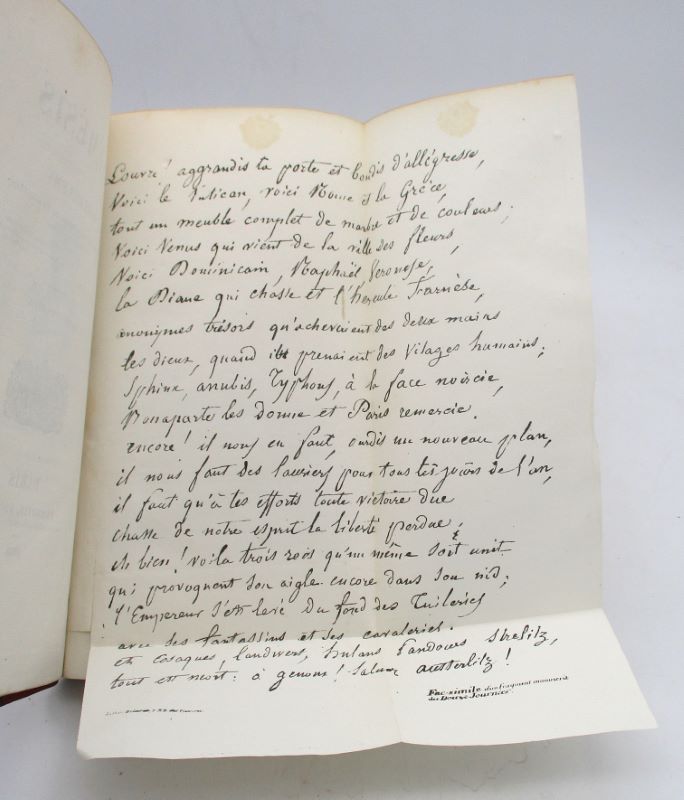 ÉSIS
Louvre! aggrandis ta porte et bondis d'allégresse,
Voici le Vatican, voici Rome et la Grèce,
tout un meuble complet de marbre et de couleurs;
Voici Venus qui vient de la ville des fleurs,
Voici Dominicain, Raphaël Veronese,
la Diane qui chasse et l'hercule Farnèse,
anonymes trésors qu'achevaient des deux mains
les dieux, quand ils prenaient des visages humains;
Sphinx, anubis, Typhons, à la face noircie,
Bonaparte les donne et Paris remercie.
encore! il nous en faut, ourdis un nouveau plan,
il nous faut des lauriers pour tous les jours de l'an,
il faut qu'à tes efforts toute victoire due
chasse de notre esprit la liberté perdue;
eh bien! voila trois rois qu'un même sort unit
qui provoquent son aigle encore dans son nid;
l'Empereur s'est levé du fond des Tuileries
avec ses fantassins et ses cavaleries.
et Cosaques, landwers, hulans Pandours Strelitz,
tout est mort: à genoux! Saluez Austerlitz!
Fac-simile d'un fragment manuscrit
des Douze Journées.